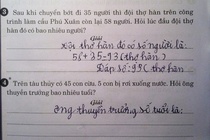 3 Sau khi chuyển bớt đi 35 người thì đội thợ hàn trên công
trình làm cầu Phú Xuân còn lại 58 người. Hỏi lúc đầu đội thợ
hàn đó có bao nhiêu người?
Giải
Đội thợ hàn đó có số người là:
58+35=93 (thợ hàn)
Đáp số: 93 thợ hàn
4 Trên tàu thủy có 45 con cừu, 5 con bị rơi xuống nước. Hỏi ông
thuyền trưởng bao nhiêu tuổi?
Giải
Ông thuyền trưởng số tuổi là: